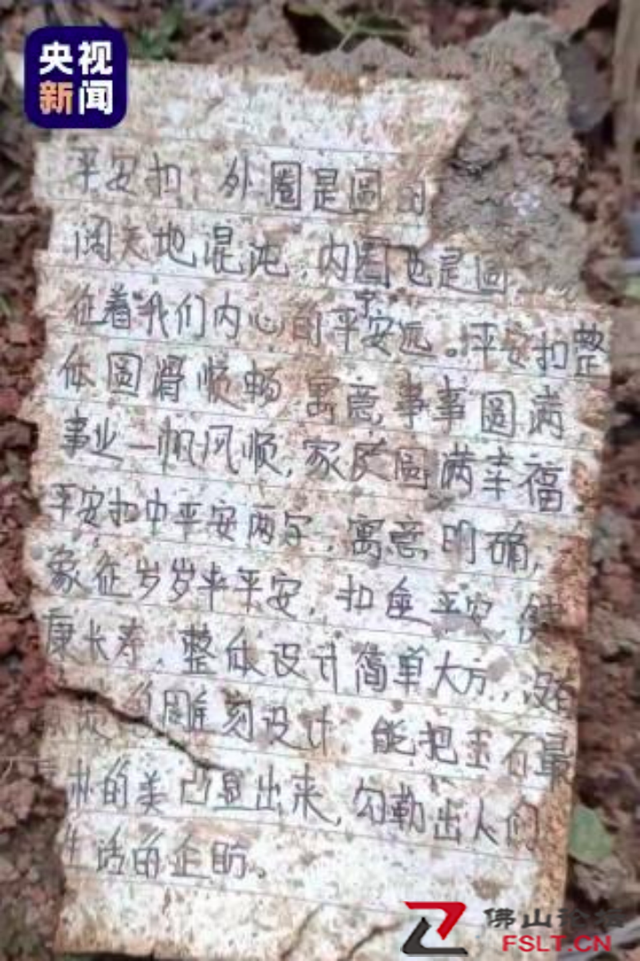 央视
新闻
平安扣,外圈是圆的
阔天地混沌,内圈也是圆
征着我们内心的平安宁远。平安扣整
体圆滑顺畅 寓意事事圆满,
事业一帆风顺,家庭圆满幸福
平安扣中平安两字,寓意明确,
象征岁岁平平安,扣住平安 健
康长寿,整体设计简单大方,没有
雕刻设计 能把玉石最
的美凸显出来,勾勒出人们
生活的企盼。
佛山论坛
FSLT.CN